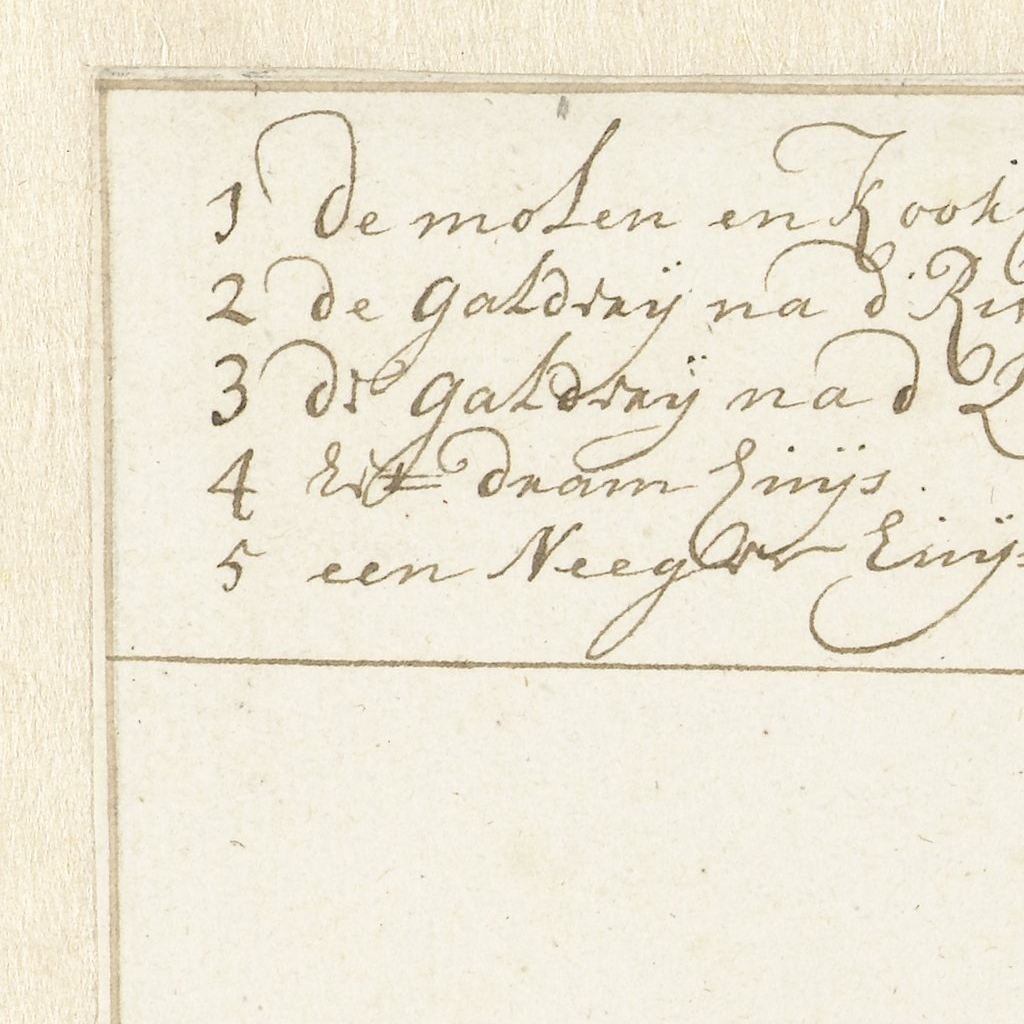 1 de molen en Kook
2 de galdrey na d' Riv
3 de galdrey na d
4 het dram huys
5 een Neeger huys